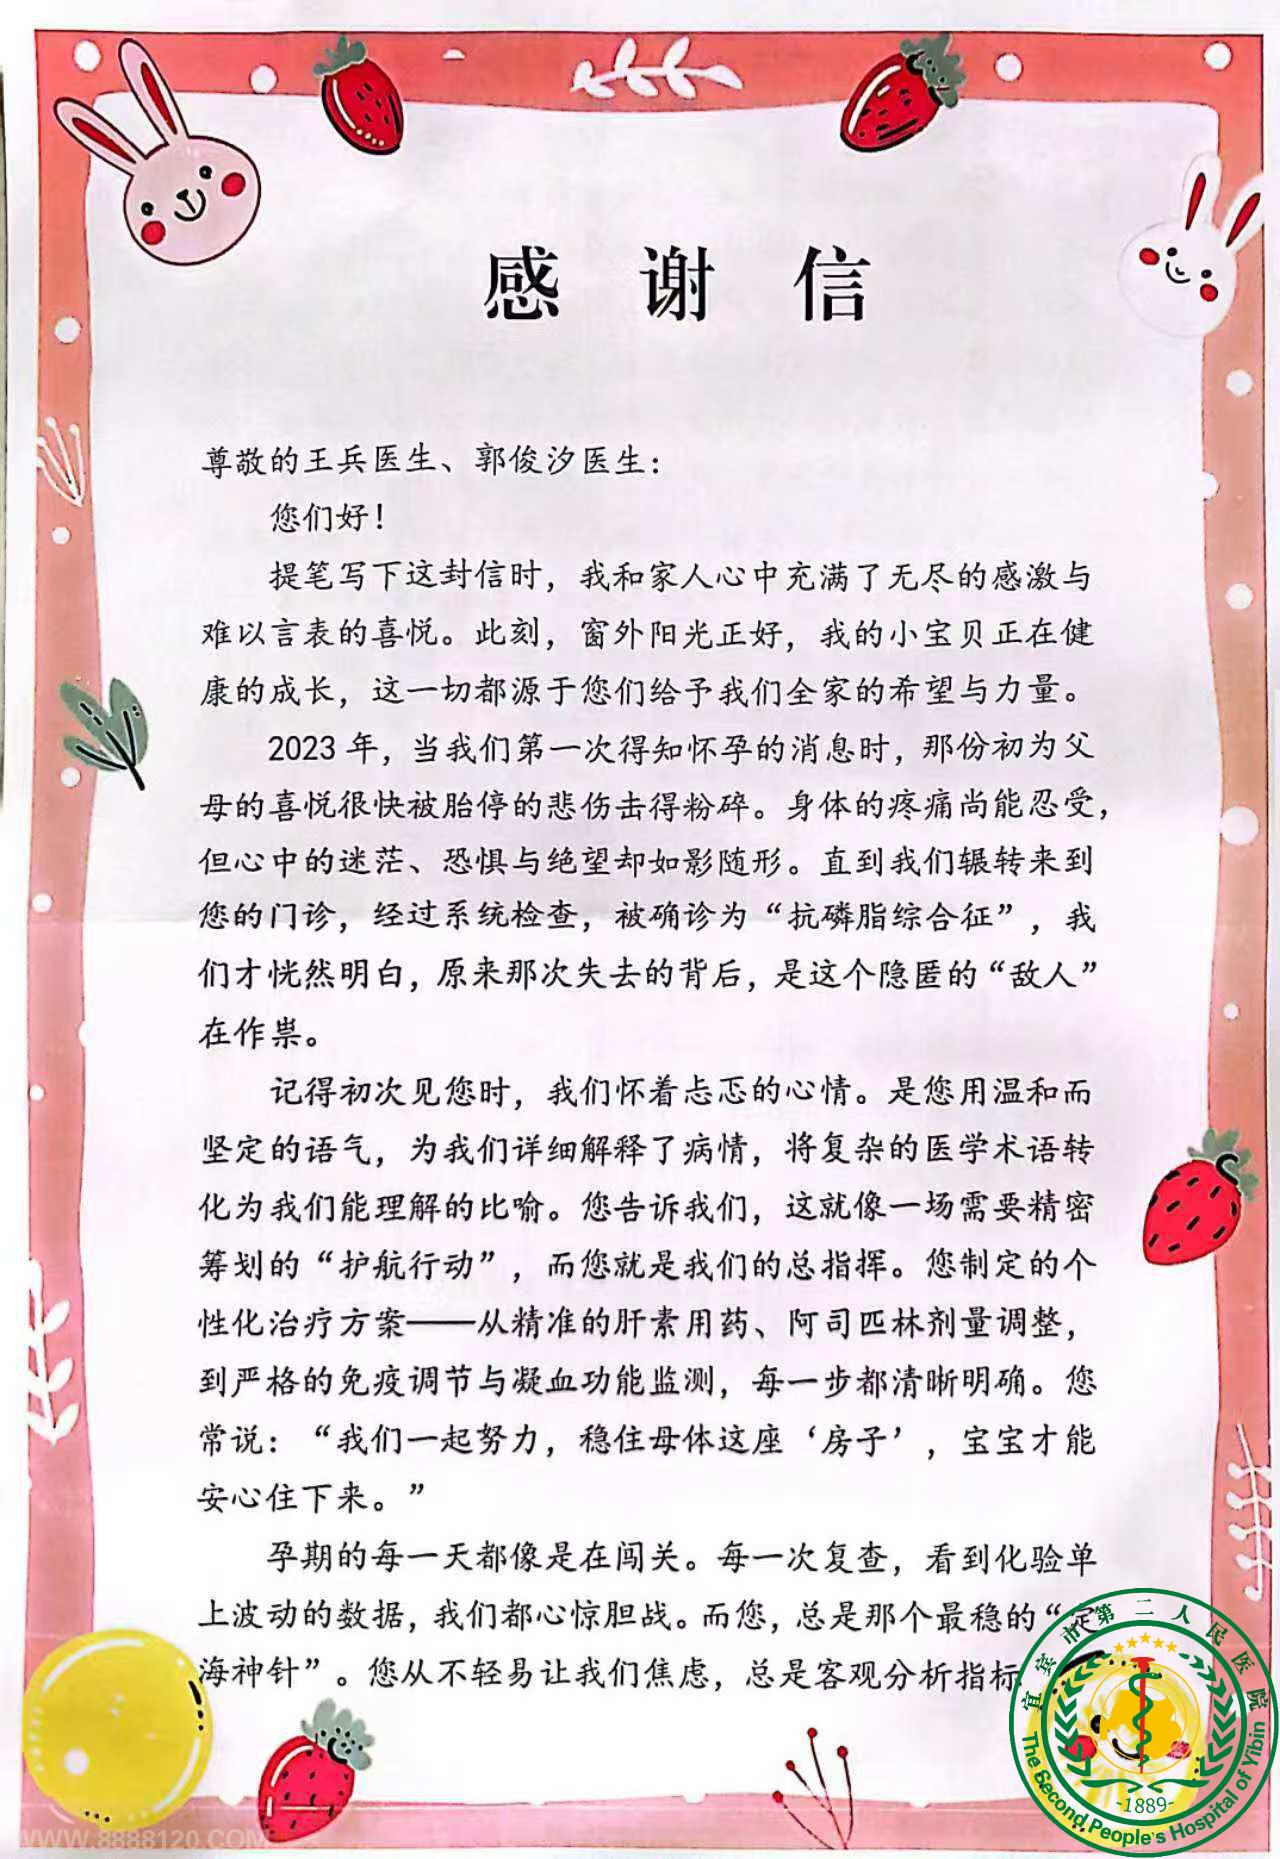 感谢信
尊敬的王兵医生、郭俊汐医生：
您们好！
提笔写下这封信时，我和家人心中充满了无尽的感激与
难以言表的喜悦。此刻，窗外阳光正好，我的小宝贝正在健
康的成长，这一切都源于您们给予我们全家的希望与力量。
2023 年，当我们第一次得知怀孕的消息时，那份初为父
母的喜悦很快被胎停的悲伤击得粉碎。身体的疼痛尚能忍受，
但心中的迷茫、恐惧与绝望却如影随形。直到我们辗转来到
您的门诊，经过系统检查，被确诊为“抗磷脂综合征”，我
们才恍然明白，原来那次失去的背后，是这个隐匿的“敌人”
在作祟。
记得初次见您时，我们怀着忐忑的心情。是您用温和而
坚定的语气，为我们详细解释了病情，将复杂的医学术语转
化为我们能理解的比喻。您告诉我们，这就像一场需要精密
筹划的“护航行动”，而您就是我们的总指挥。您制定的个
性化治疗方案——从精准的肝素用药、阿司匹林剂量调整，
到严格的免疫调节与凝血功能监测，每一步都清晰明确。您
常说：“我们一起努力，稳住母体这座‘房子’，宝宝才能
安心住下来。”
孕期的每一天都像是在闯关。每一次复查，看到化验单
上波动的数据，我们都心惊胆战。而您，总是那个最稳的“定
海神针”。您从不轻易让我们焦虑，总是客观分析指标
宜宾市第二人民医院
-1889-
The Second People's Hospital of Yibin
WWW.8888120.COM